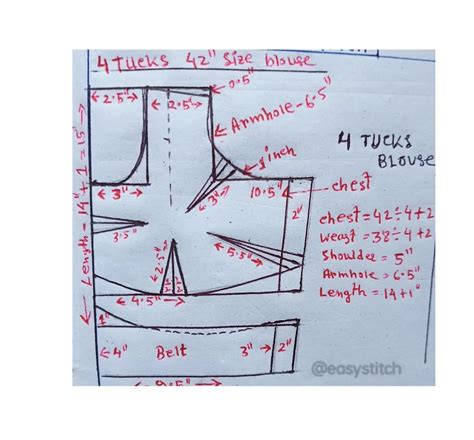 4 TUCKS 42" Size blouse
0.5"
2.5"
2.5"
Armhole-6.5"
1" inch
4 TUCKS
BLOUSE
Length = 14"+1 = 15"
3"
3"
10.5"
chest
2"
chest=42÷4+2
weast=38÷4+2
Shoulder = 5"
Armhole = 6.5"
Length = 14+1"
3.5"
2.5"
5.5"
½ ½
4.5"
1"
4"
Belt
3"
2"
@easystitch
9.5"